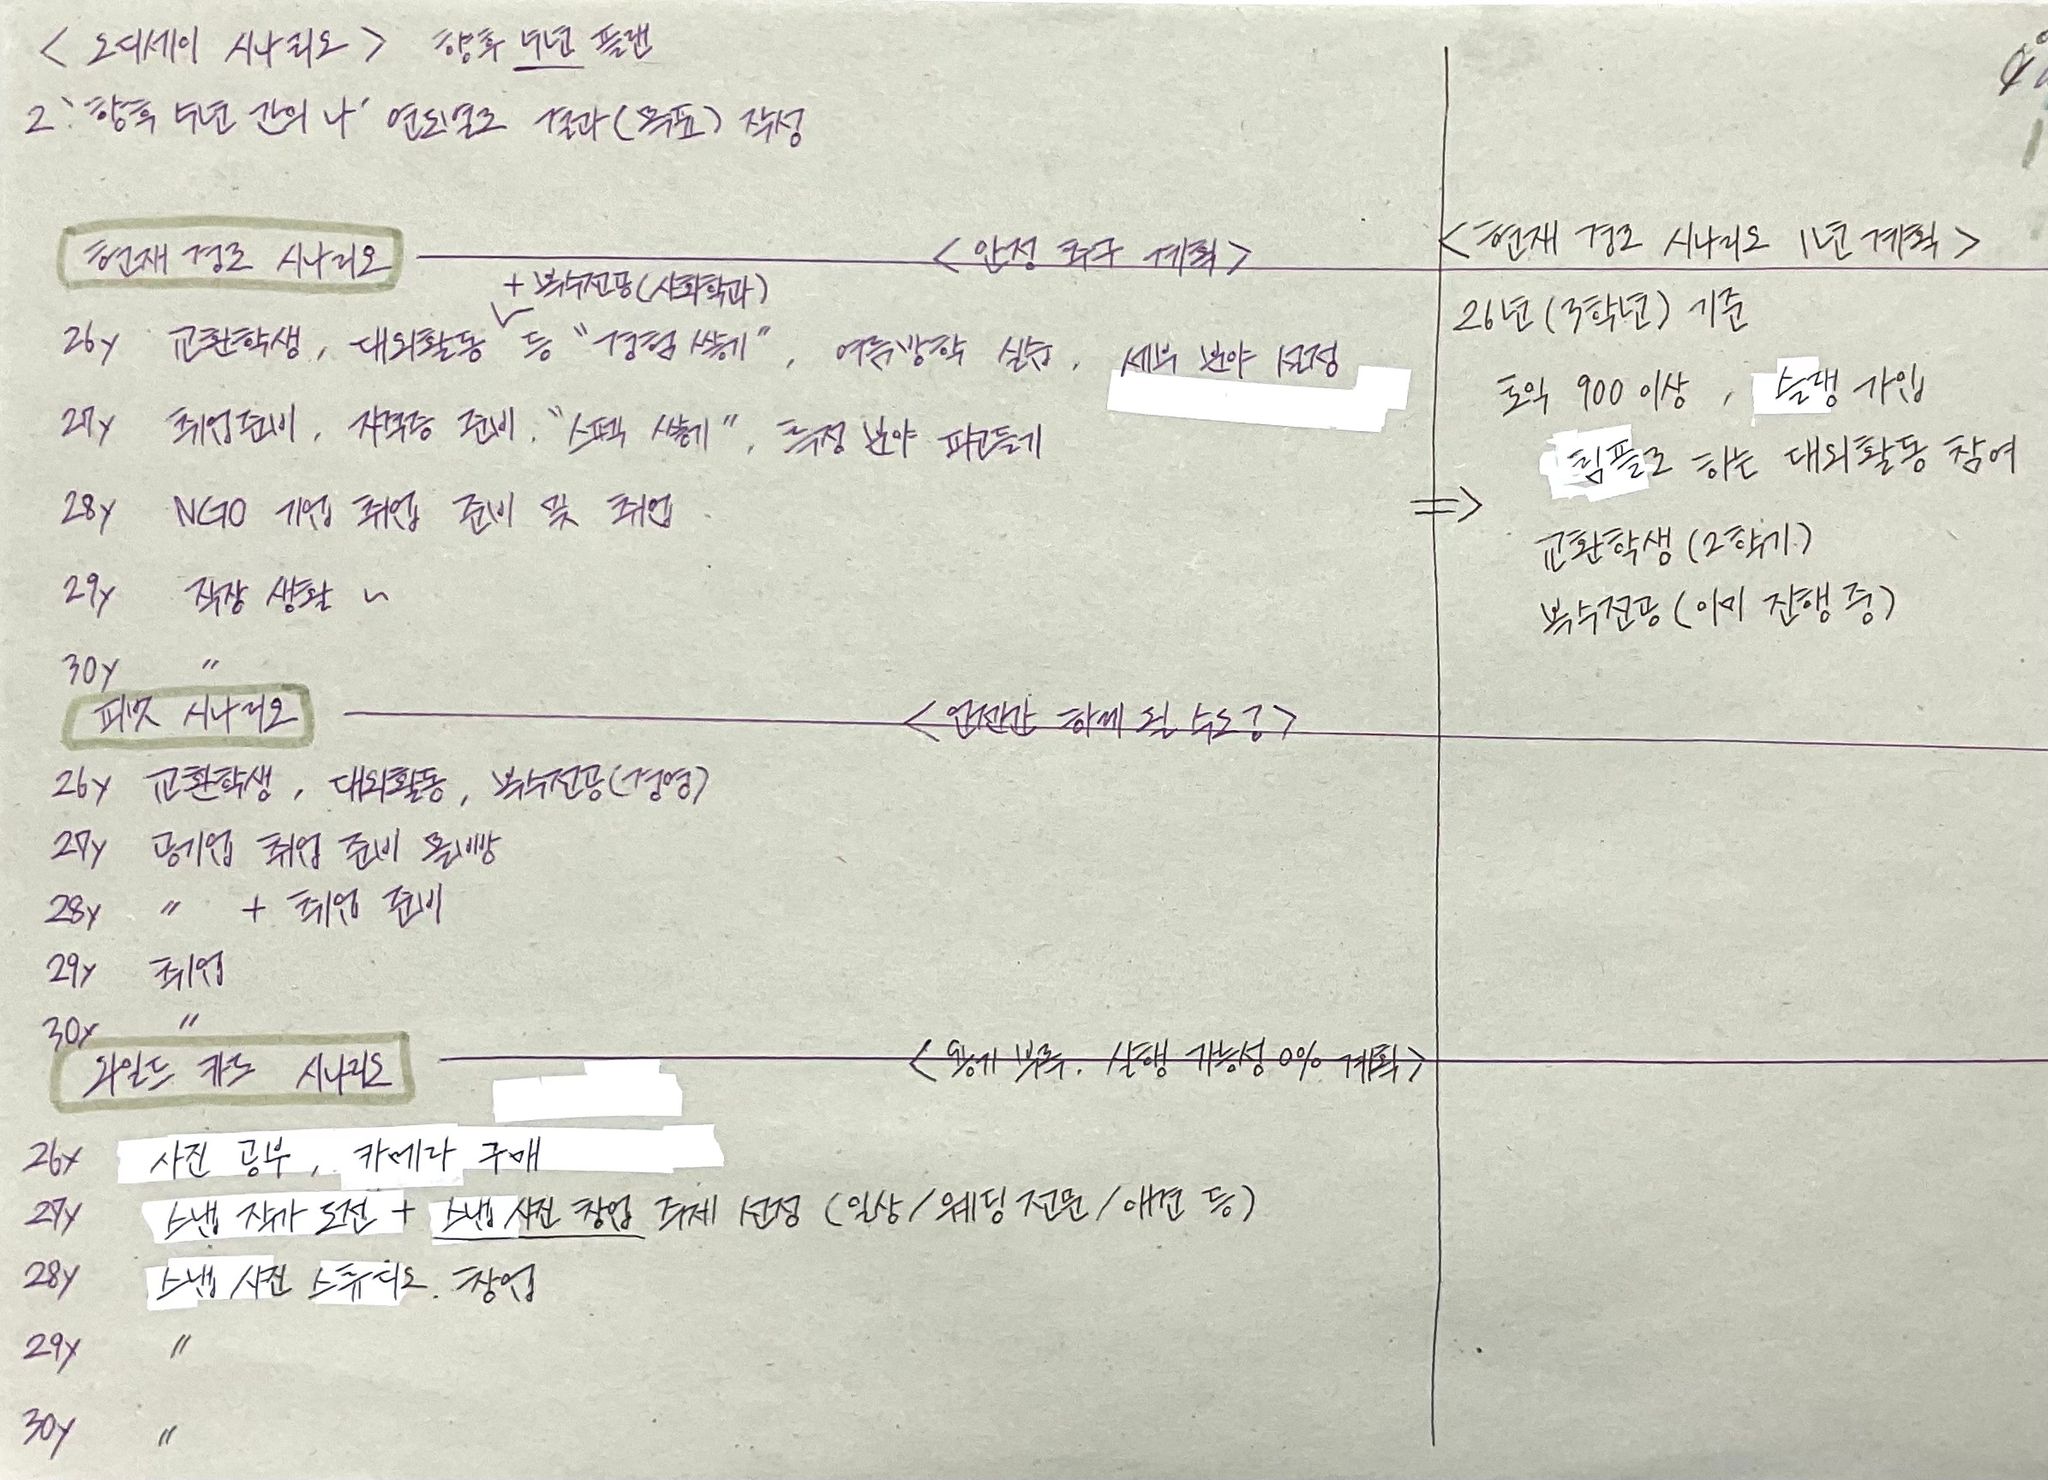 <오디세이 시나리오> 향후 5년 플랜
2. '향후 5년 간의 나' 연도별로 결과(목표) 작성
현재 경로 시나리오 <안정 추구 계획>
+ 복수전공(사회학과)
26y 교환학생, 대외활동 등 "경험 쌓기", 여름방학 실습, 세부 분야 선정
27y 취업준비, 자격증 준비, "스펙 쌓기", 특정 분야 파고들기
28y NGO 기업 취업 준비 및 취업
29y 직장 생활 ~
30y "
피벗 시나리오 <언젠간 하게 될 수도?>
26y 교환학생, 대외활동, 복수전공(경영)
27y 공기업 취업 준비 몰빵
28y " + 취업 준비
29y 취업
30y "
와일드 카드 시나리오 <용기 부족. 실행 가능성 0% 계획>
26y 사진 공부, 카메라 구매
27y 스냅 작가 도전 + 스냅 사진 창업 주제 선정 (일상/웨딩 전문/애견 등)
28y 스냅 사진 스튜디오. 창업
29y "
30y "
<현재 경로 시나리오 1년 계획>
26년(3학년) 기준
토익 900 이상, 슬랭 가입
⇒ 팀플로 하는 대외활동 참여
교환학생(2학기)
복수전공(이미 진행 중)